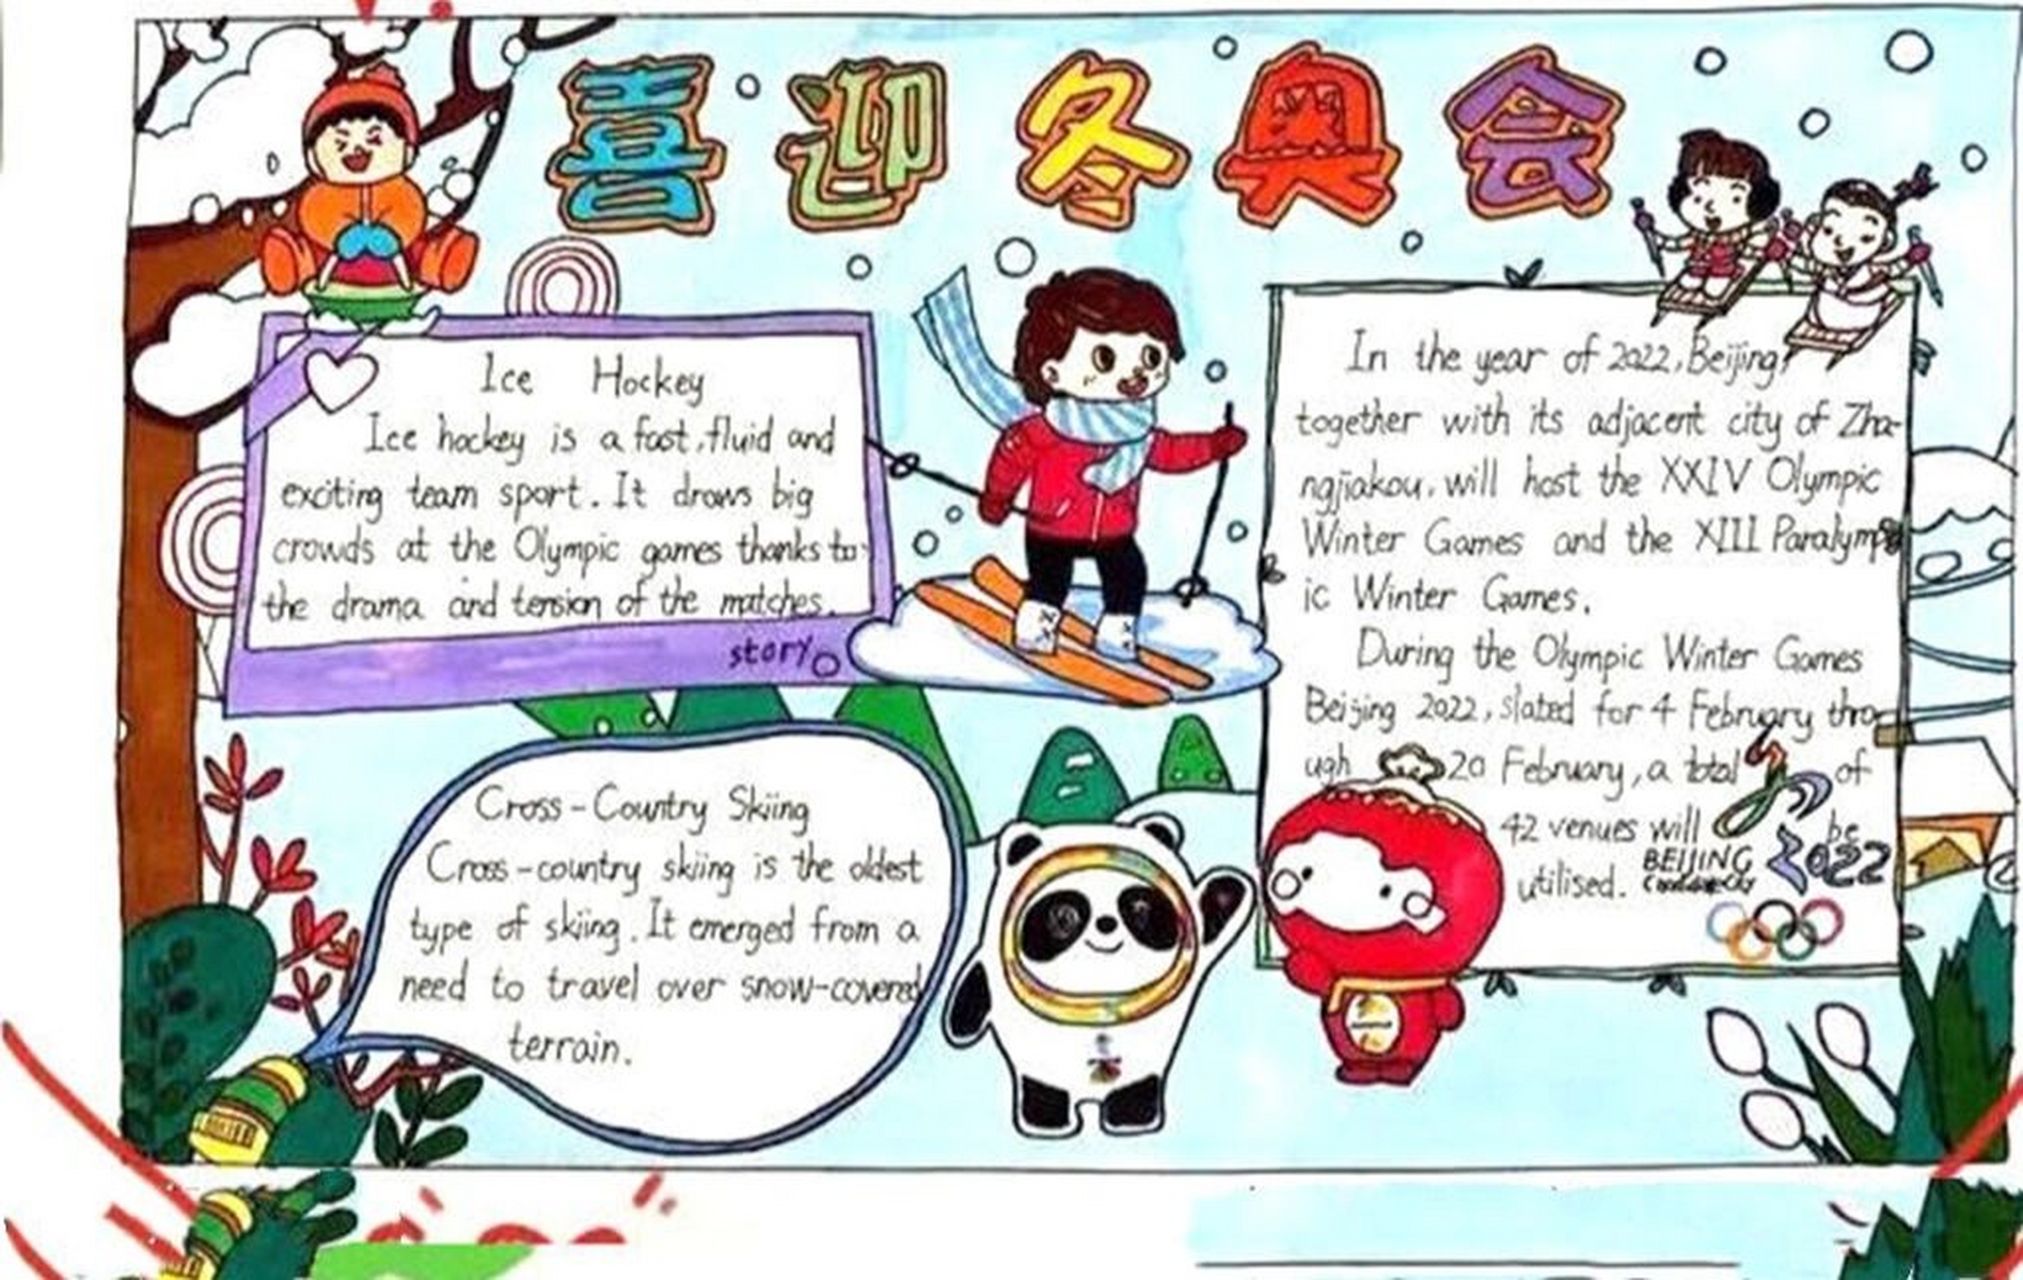 喜迎冬奥会
Ice Hockey
Ice hockey is a fast, fluid and
exciting team sport. It draws big
crowds at the Olympic games thanks to
the drama and tension of the matches.
story
Cross-Country Skiing
Cross-country skiing is the oldest
type of skiing. It emerged from a
need to travel over snow-covered
terrain.
In the year of 2022, Beijing,
together with its adjacent city of Zha-
ngjiakou, will host the XXIV Olympic
Winter Games and the XIII Paralymp
ic Winter Games.
During the Olympic Winter Games
Beijing 2022, slated for 4 February thro
ugh 20 February, a total of
42 venues will be
utilised.
BEIJING 2022